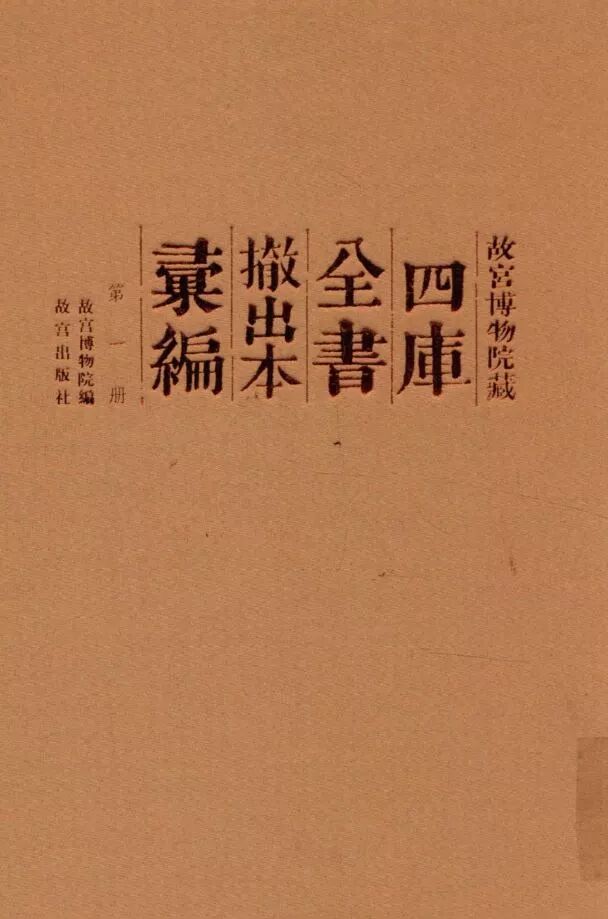 故宮博物院藏
四庫
全書
撤出本
彙編
第一册
故宮博物院編
故宮出版社